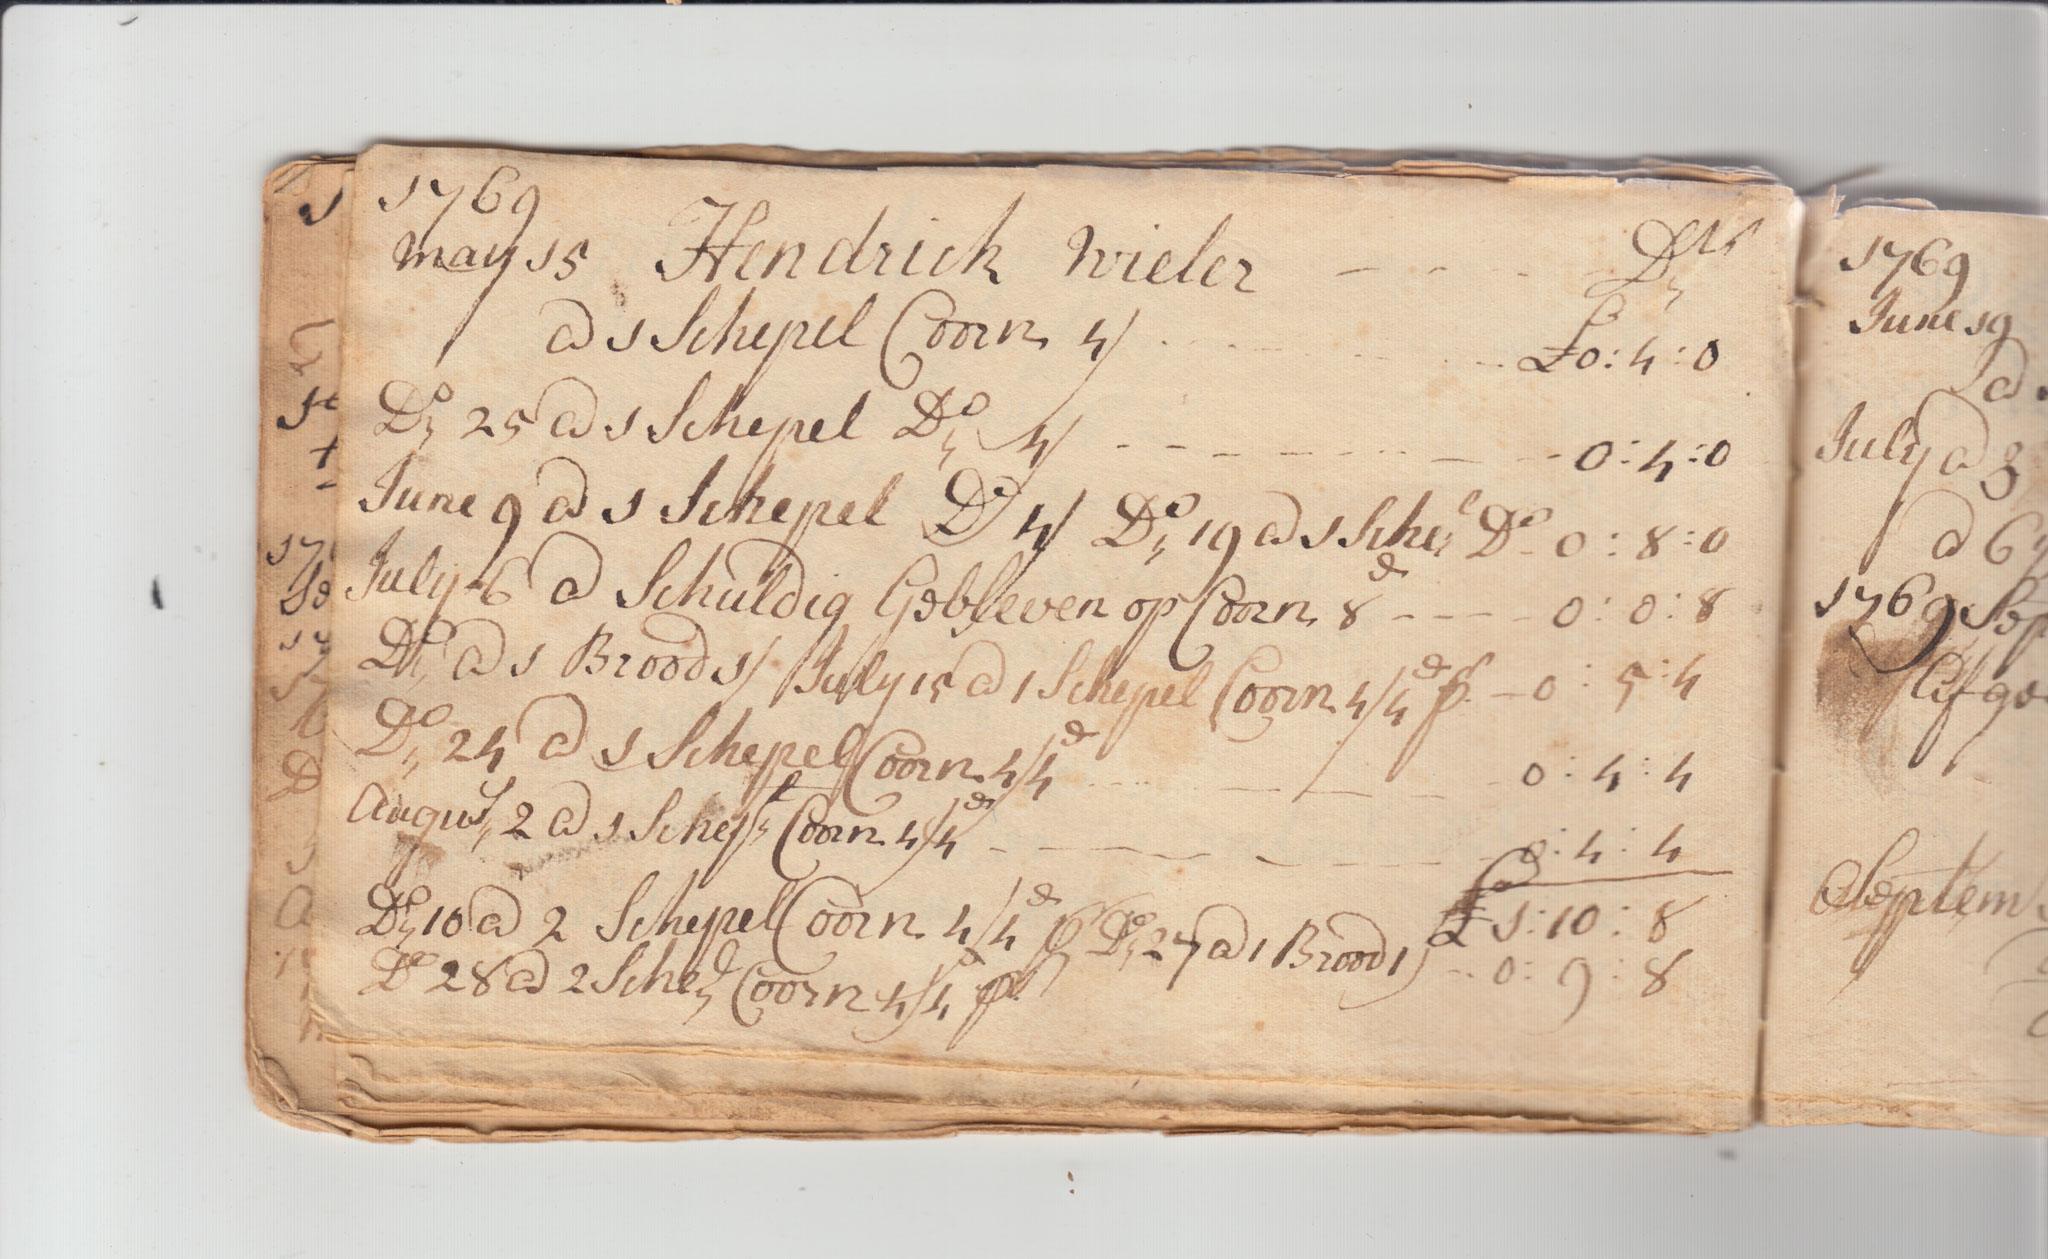 1769
May 15 Hendrick Wieler - - - - Dr
@ 1 Schepel Coorn 4/ - - - £0:4:0
Do 25 @ 1 Schepel Do 4/ - - - - 0:4:0
June 9 @ 1 Schepel Do 4/ Do 19 @ 1 Schel Do - 0:8:0
July 6 @ Schuldig Gebleven op Coorn 8d - - - - 0:0:8
Do @ 1 Brood 1/ July 15 @ 1 Schepel Coorn 4/4d p - 0:5:4
Do 24 @ 1 Schepel Coorn 4/4d - - - 0:4:4
Augus 2 @ 1 Schep Coorn 4/4d - - - - 0:4:4
£1:10:8
Do 10 @ 2 Schepel Coorn 4/4d p Do 27 @ 1 Brood 1/ - 0:9:8
Do 28 @ 2 Schel Coorn 4/4 p
1769
June 19
@
July @ 3
@ 6
1769 Sep
@ Septem